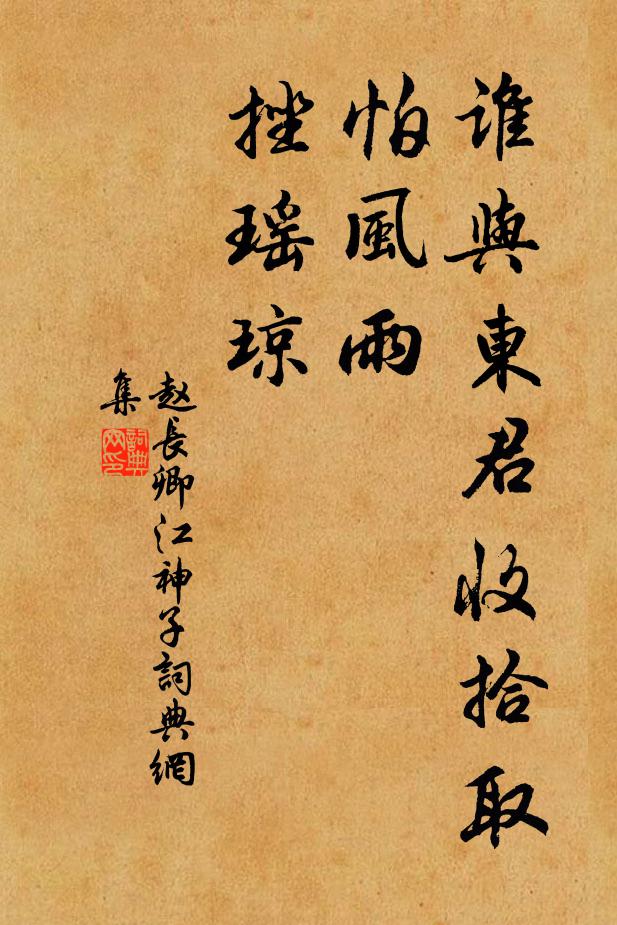 誰與東君收拾取
怕風雨
挫瑶琼
赵長卿江神子詞典網
集
詞典
网印